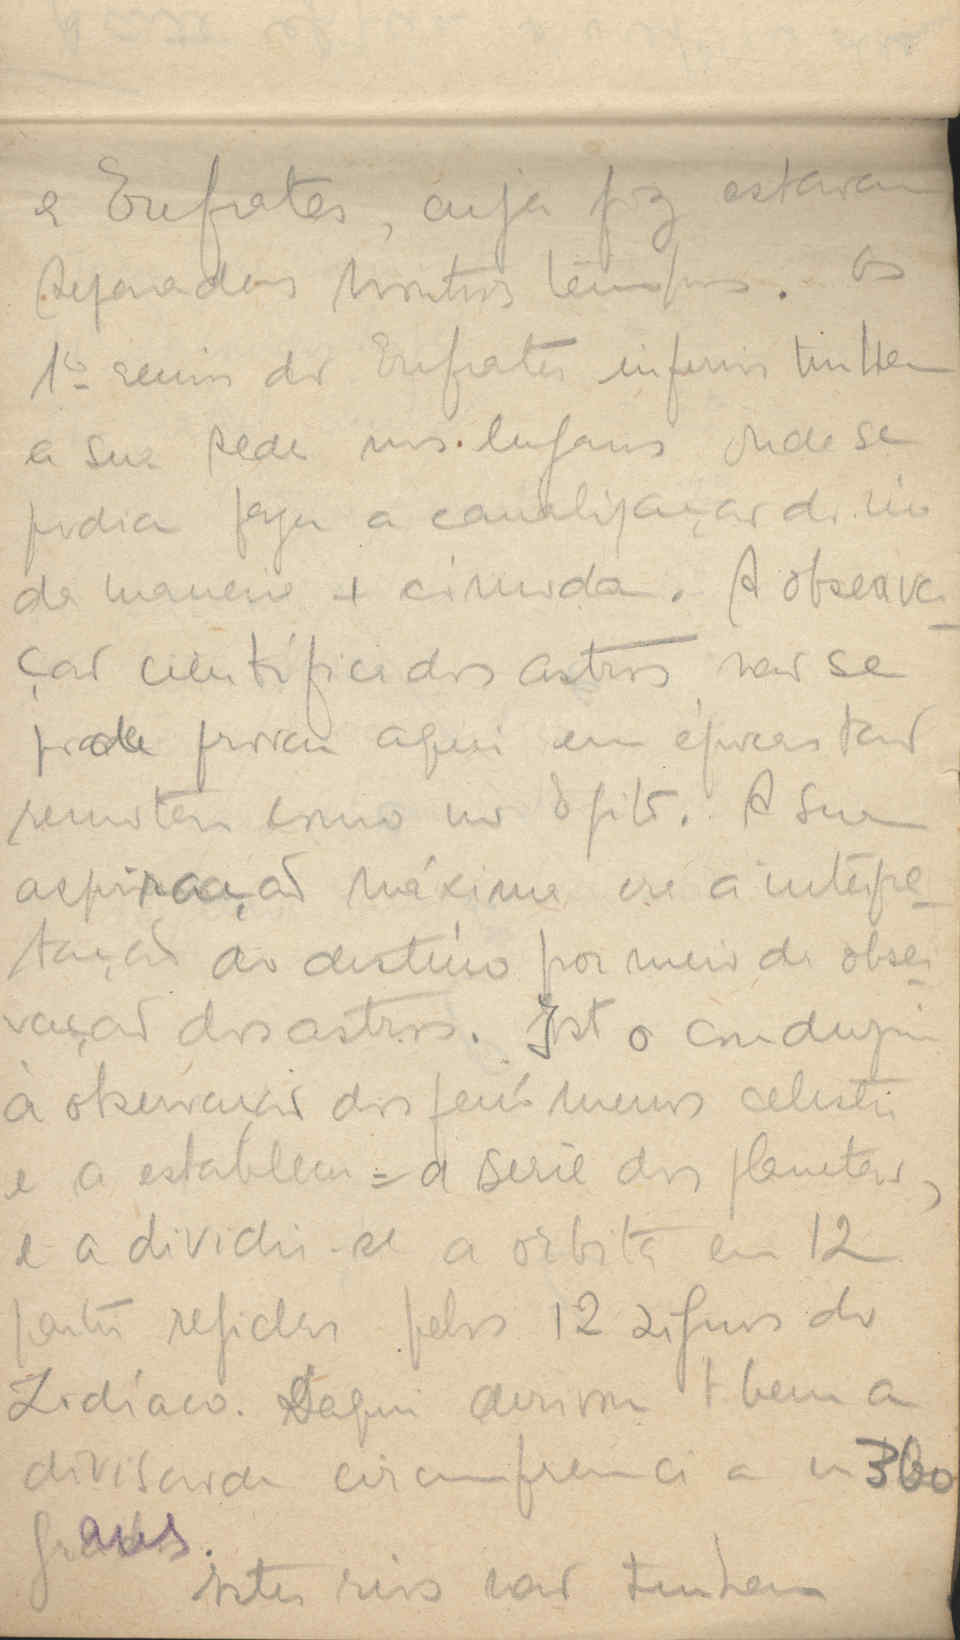 e Eufrates, cuja foz estavam
separadas noutros tempos. Os
1os reinos do Eufrates inferior tinham
a sua sede nos lugares onde se
podia fazer a canalização do rio
de maneira + cómoda. A observa-
ção científica dos astros não se
pode provar aqui em épocas tão
remotas como no Egito. A sua
aspiração máxima era a interpe-
tação do destino por meio da obser-
vação dos astros. Isto conduziu
à observação dos fenómenos celestes
e a estabelecer=a serie dos planetas,
e a dividir-se a orbita em 12
partes regidas pelos 12 signos do
Zodíaco. Daqui derivou tbem a
divisão da circumfrencia em 360
graus.
Estes reis não tinham